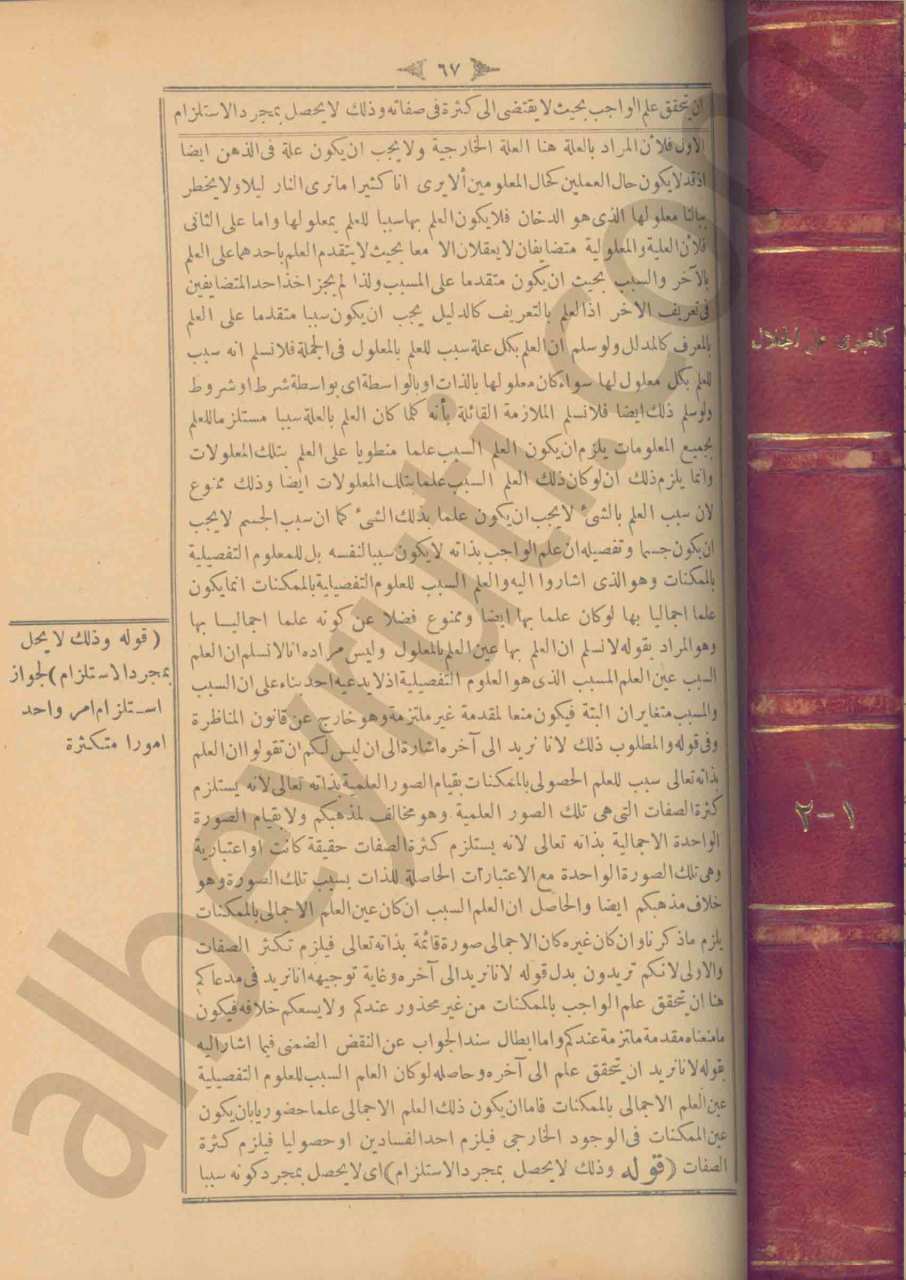 ٦٧
ان يتحقق علم الواجب بحيث لا يقتضى الى كثرة فى صفاته وذلك لا يحصل بمجرد الاستلزام
الاول فلأن المراد بالعلة هنا العلة الخارجية ولا يجب ان يكون علة فى الذهن ايضا
اذ قد لا يكون حال العملين كحال المعلومين ألا يرى انا كثيرا ما نرى النار ليلا ولا يخطر
ببالنا معلولها الذى هو الدخان فلا يكون العلم بها سببا للعلم بمعلولها واما على الثانى
فلأن العلية والمعلولية متضايفان لا يعقلان الا معا بحيث لا يتقدم العلم باحدهما على العلم
بالآخر والسبب بحيث ان يكون متقدما على المسبب ولذا لم يجز اخذ احد المتضايفين
فى تعريف الآخر اذ العلم بالتعريف كالدليل يجب ان يكون سببا متقدما على العلم
بالمعرف كالمدلل ولو سلم ان العلم بكل علة سبب للعلم بالمعلول فى الجملة فلا نسلم انه سبب
للعلم بكل معلول لها سواء كان معلولها بالذات او بالواسطة اى بواسطة شرط او شروط
ولو سلم ذلك ايضا فلا نسلم الملازمة القائلة بأنه كلما كان العلم بالعلة سببا مستلزما للعلم
بجميع المعلومات يلزم ان يكون العلم السبب علما منطويا على العلم بتلك المعلولات
وانما يلزم ذلك ان لو كان ذلك العلم السبب علما بتلك المعلولات ايضا وذلك ممنوع
لان سبب العلم بالشئ لا يجب ان يكون علما بذلك الشئ كما ان سبب الجسم لا يجب
ان يكون جسما وتفصيله ان علم الواجب بذاته لا يكون سببا لنفسه بل للمعلوم التفصيلية
بالمكنات وهو الذى اشاروا اليه والعلم السبب للعلوم التفصيلية بالممكنات انما يكون
علما اجماليا بها لو كان علما بها ايضا وممنوع فضلا عن كونه علما اجماليا بها
وهو المراد بقوله لا نسلم ان العلم بها عين العلم بالمعلول وليس مراده انا لا نسلم ان العلم
السبب عين العلم المسبب الذى هو العلوم التفصيلية اذ لا يدعيه احد بناء على ان السبب
والمسبب متغايران البتة فيكون منعا لمقدمة غير ملتزمة وهو خارج عن قانون المناظرة
وفى قوله والمطلوب ذلك لانا نريد الى آخره اشارة الى ان ليس لكم ان تقولوا ان العلم
بذاته تعالى سبب للعلم الحصولى بالممكنات بقيام الصور العلمية بذاته تعالى لانه يستلزم
كثرة الصفات التى هى تلك الصور العلمية وهو مخالف لمذهبكم ولا بقيام الصورة
الواحدة الاجمالية بذاته تعالى لانه يستلزم كثرة الصفات حقيقة كانت او اعتبارية
وهى تلك الصورة الواحدة مع الاعتبارات الحاصلة للذات بسبب تلك الصورة وهو
خلاف مذهبكم ايضا والحاصل ان العلم السبب ان كان عين العلم الاجمالى بالممكنات
يلزم ما ذكرنا وان كان غيره كان الاجمالى صورة قائمة بذاته تعالى فيلزم تكثر الصفات
والاولى لانكم تريدون بدل قوله لانا نريد الى آخره وغاية توجيهه انا نريد فى مدعاكم
هنا ان يتحقق علم الواجب بالممكنات من غير محذور عندكم ولا يسعكم خلافه فيكون
ما منعناه مقدمة ملتزمة عندكم واما ابطال سند الجواب عن النقض الضمنى فبما اشار اليه
بقوله لانا نريد ان يتحقق علم الى آخره وحاصله لو كان العلم السبب للعلوم التفصيلية
عين العلم الاجمالى بالممكنات فاما ان يكون ذلك العلم الاجمالى علما حضوريا بان يكون
عين الممكنات فى الوجود الخارجى فيلزم احد الفسادين او حصوليا فيلزم كثرة
الصفات (قوله وذلك لا يحصل بمجرد الاستلزام) اى لا يحصل بمجرد كونه سببا
(قوله وذلك لا يحل
بمجرد الاستلزام) لجواز
استلزام امر واحد
امورا متكثرة
كلنبوى على الجلال
١-٢
albeyruti.com